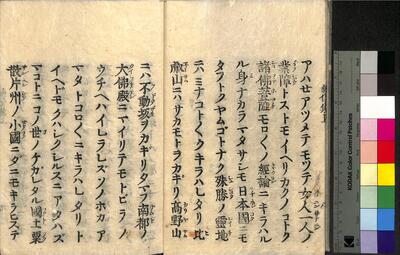 アハセアツメテモツテ女人一人ノ
業障トストモイヘリカクノコトク
諸佛菩薩モロ〱ノ經論ニキラハル
ル身ナカラマタサシモ日本國ニモ
タラトクヤムコトナク殊勝ノ靈地
ニハミナコト〱クキラハレタリ比
叡山ニハサカモトヲカキリ高野山
ニハ不動坂ヲカキリタマフ南都ノ
大佛殿ニマイリテモトビラノ
ウチヘハイレラレズソノホカア
マタトコロ〱ニキラハレタリト
イヘトモクハシクシルスニアタハズ
マコトニコノ世ノケカレタル國土粟
散片州ノ小國ニダニモキラヒステ
KODAK Color Control Patches